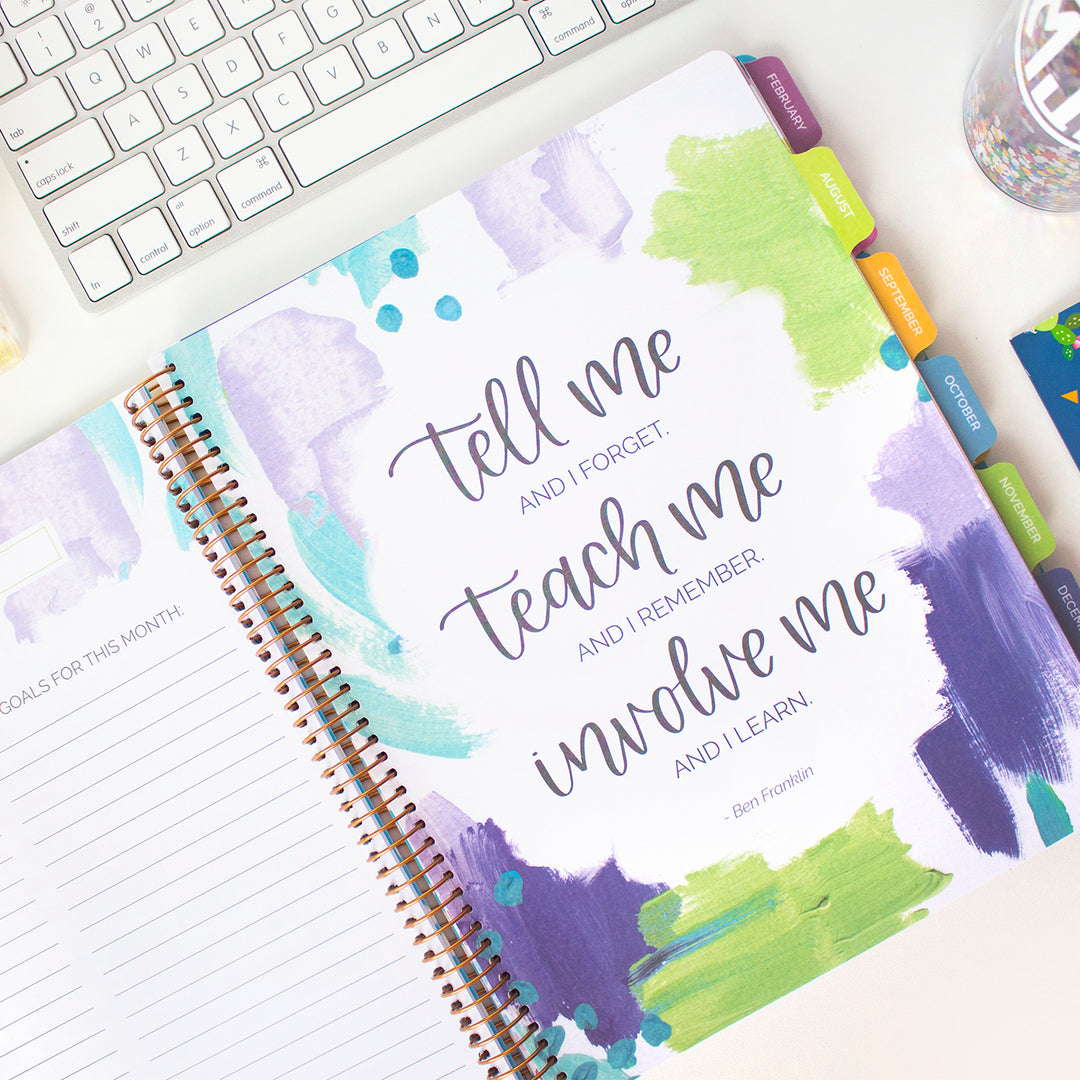 1
2
Q
W
E
R
tab
A
S
D
F
caps lock
Z
X
C
V
B
N
M
shift
fn
control
alt
option
⌘
command
⌘
command
option
FEBRUARY
AUGUST
SEPTEMBER
OCTOBER
NOVEMBER
tell me
AND I FORGET.
teach me
AND I REMEMBER.
involve me
AND I LEARN.
- Ben Franklin
GOALS FOR THIS MONTH: